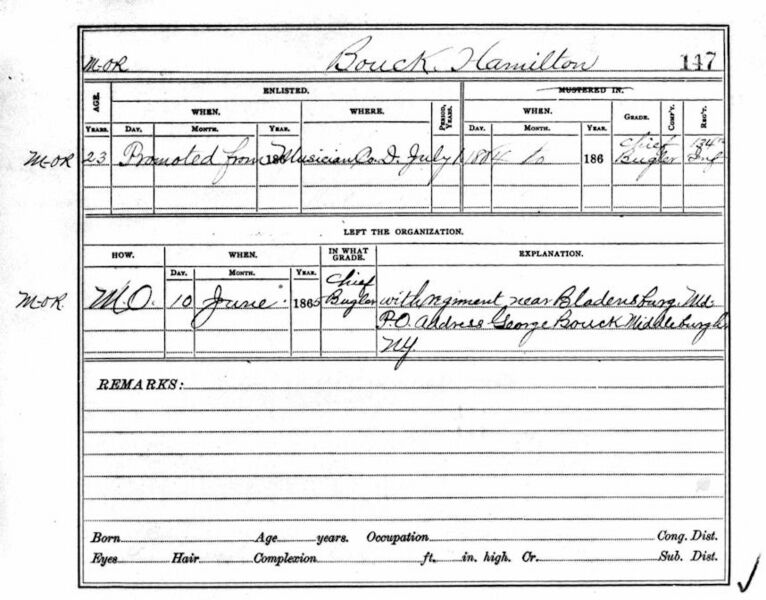 M-OR Bouck, Hamilton 147
AGE. ENLISTED. MUSTERED IN.
WHEN. WHERE. PERIOD, YEARS. WHEN. GRADE. COMP'Y. REG'T.
YEARS. DAY. MONTH. YEAR. DAY. MONTH. YEAR.
M-OR 23 Promoted from 186 Musician Co. D. July 1 1864 to 186 Chief Bugler 134th Inf
LEFT THE ORGANIZATION.
HOW. WHEN. IN WHAT GRADE. EXPLANATION.
DAY. MONTH. YEAR.
M-OR. M.O. 10 June 1865 Chief Bugler with regiment near Bladensburg Md.
P.O. Address George Bouck Middleburgh
NY
REMARKS:
Born Age years. Occupation Cong. Dist.
Eyes Hair Complexion ft. in. high. Cr. Sub. Dist.